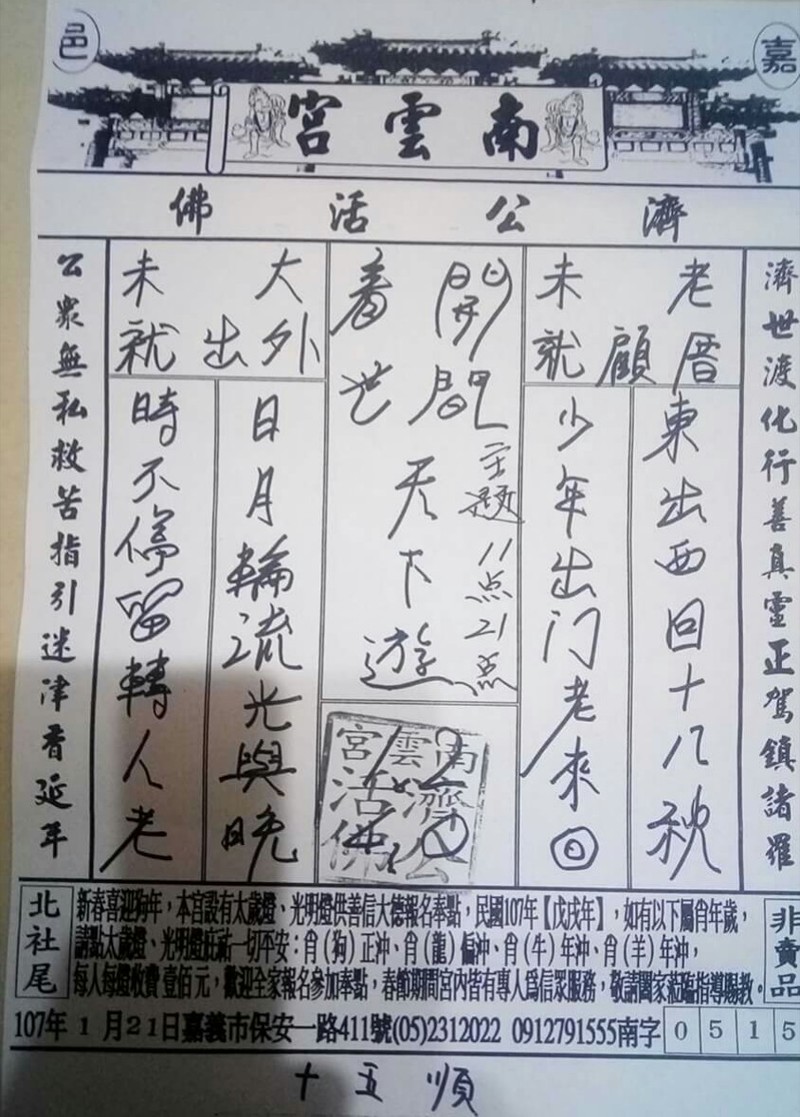 嘉
邑
南雲宮
濟公活佛
濟世渡化行善真靈正駕鎮諸羅
老厝
顧
未就
東出西回十八秋
少年出门老來回
開閱
看世
天下遊
主題11点21点
南雲宮
濟公
活佛
大外
出
未就
日月輪流光與晚
時不停留轉人老
公眾無私救苦指引迷津香延年
北社尾
新春喜迎狗年，本宮設有太歲燈、光明燈供善信大德報名奉點，民國107年【戊戌年】，如有以下屬肖年歲，
請點太歲燈、光明燈庇祐一切平安：肖（狗）正沖、肖（龍）偏沖、肖（牛）年沖、肖（羊）年沖，
每人每燈收費壹佰元，歡迎全家報名參加奉點，春節期間宮內皆有專人為信眾服務，敬請闔家蒞臨指導賜教。
非賣品
107年1月21日嘉義市保安一路411號(05)2312022 0912791555南字0515
十五順